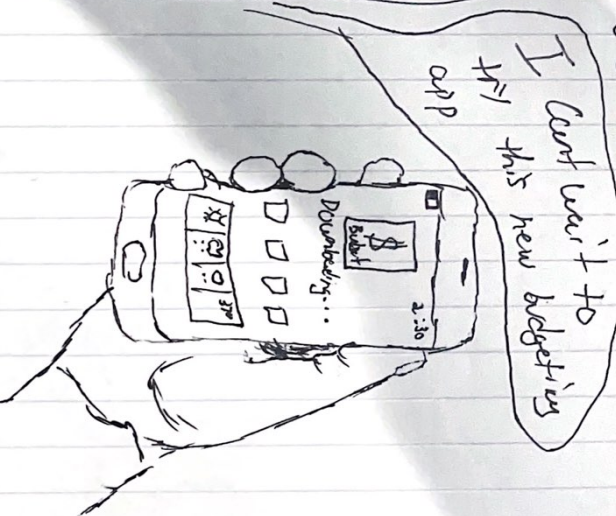 I can't wait to
try this new budgeting
app
2:30
$
Budget
Downloading...